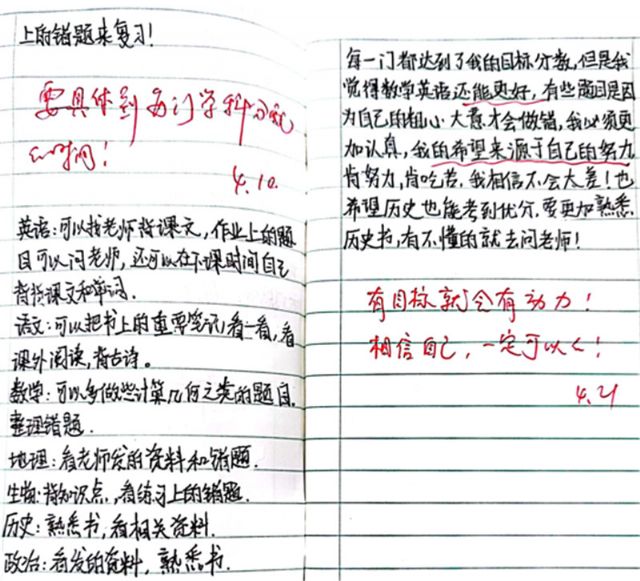 上的错题来复习!
要具体到每门学科分配
的时间!
4.10.
英语:可以找老师背课文,作业上的题
目可以问老师,还可以在下课时间自己
背背课文和单词.
语文:可以把书上的重要笔记,看一看,看
课外阅读,背古诗。
数学:可以多做些计算几何之类的题目.
整理错题.
地理:看老师发的资料和错题.
生物:背知识点,看练习上的错题.
历史:熟悉书,看相关资料.
政治:看发的资料,熟悉书.
每一门都达到了我的目标分数,但是我
觉得数学英语还能更好,有些题目是因
为自己的粗心大意才会做错,我必须更
加认真,我的希望来源于自己的努力
肯努力,肯吃苦,我相信不会太差!也
希望历史也能考到优分,要更加熟悉
历史书,有不懂的就去问老师!
有目标就会有动力!
相信自己,一定可以!
4.21